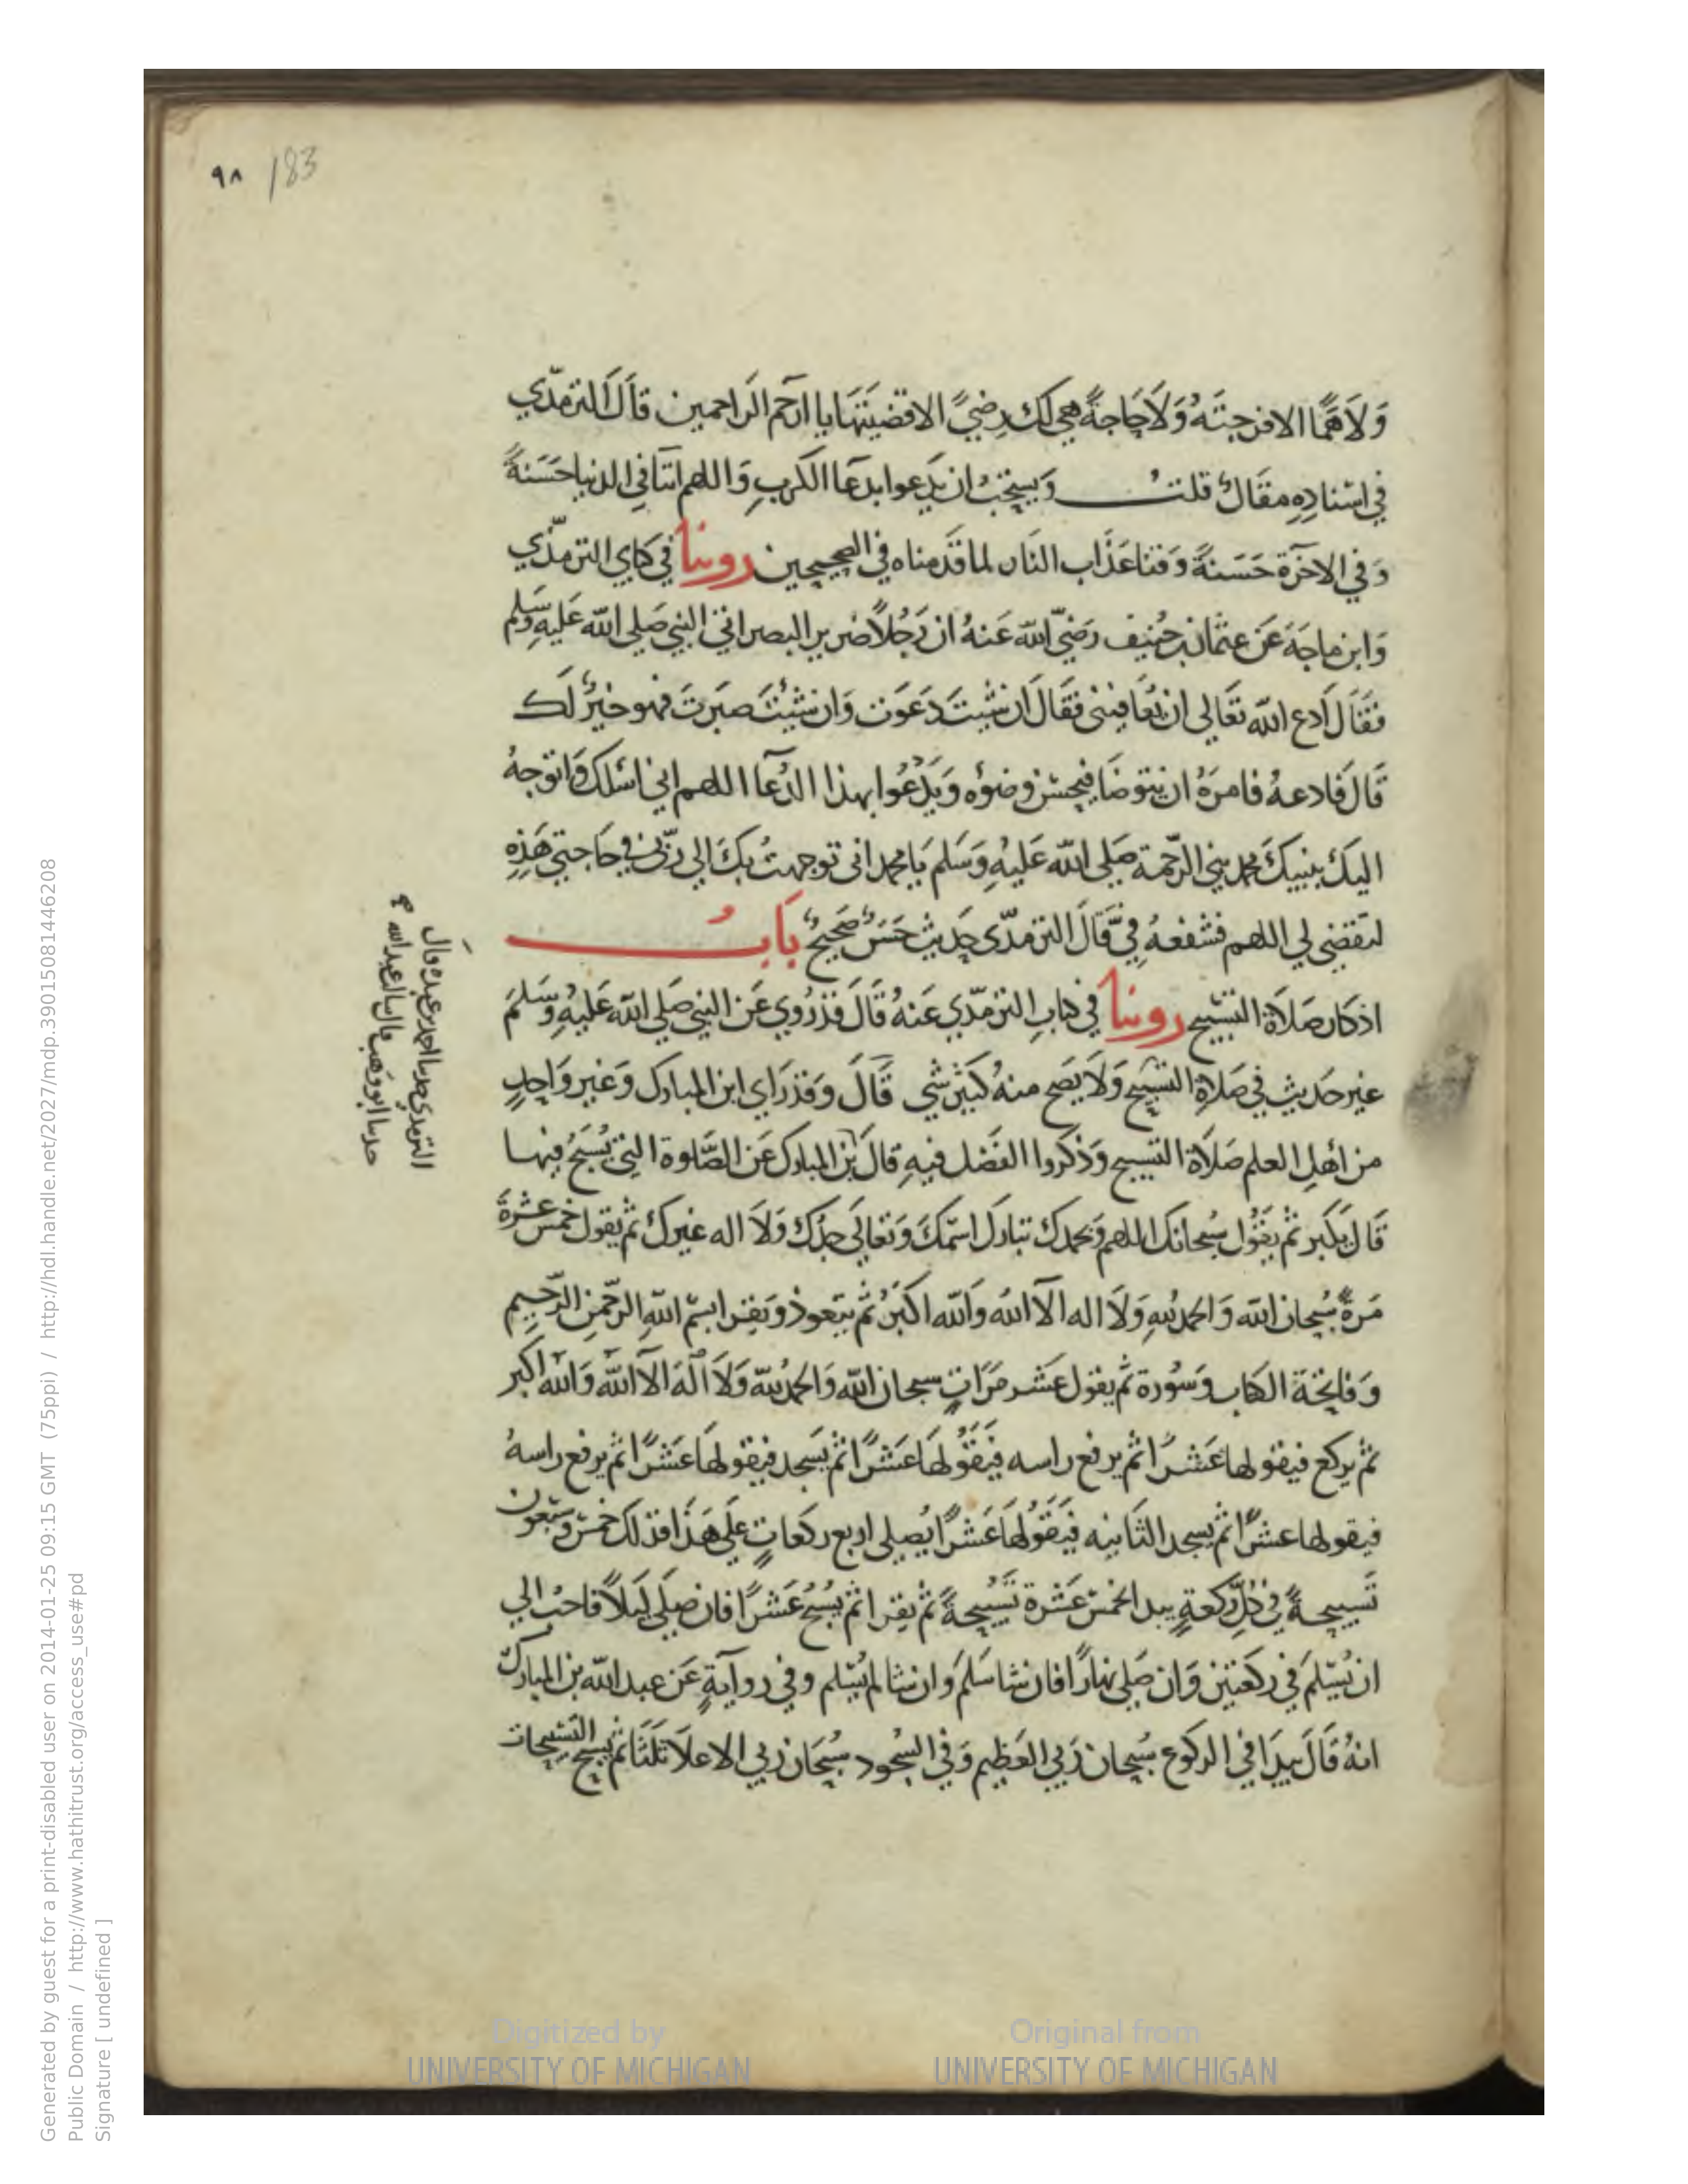 ٩٨ 183
وَلَا هَمًّا الا فرجتَهُ وَلَا حَاجةً هي لك رِضيً الا قضيتَهَا يا ارحَم الرَاحمين قَالَ الترمذّي
في اسْنادِهِ مقَالٌ قلتُ وَيستحَبُ ان يَدعوا بدعَا الكربِ وَاللهم اتنَا في الدنيا حَسَنةً
وَفي الاخرَة حَسَنةً وَقنا عَذَاب النَار لما قدَمناه في الصحيحين روينا في كتابي الترمذّي
وَابن ماجَهَ عَن عثمَان بن حُنيف رَضيَ اللّه عَنهُ ان رَجُلاً ضرير البصر اتي النبي صَلى اللّه عَليهِ وسَلم
فقَالَ اَدع اللّه تعَالى ان يُعَافيَنى فقَالَ ان شيتَ دَعَوت وَان شيْتَ صَبَرتَ فهو خيرٌ لَك
قَالَ فَادعهُ فامرَهُ ان يتوضَا فيحسن وضوُه وَيَدْعُوا بهذا الدُعَآ اللهم اني اسْلك وَاتوجهُ
اليكَ بنبيكَ محمد نبي الرَحمة صَلى اللّه عَليهِ وَسَلم يَا محمد انى توجهتُ بكَ الي رَبّى في حَاجتي هَذِهِ
لتقضي لي اللهم فشفعهُ فِيَّ قَالَ الترمذّى حَديث حَسَنٌ صَحيحٌ بَابُ
اذكار صَلَاة التسبيح روينا في كتابِ الترمذّي عَنهُ قَالَ قَدْ رُوي عَن النبي صَلى اللّه عَليهِ وَسَلمَ
غير حَديث في صَلَاةِ التسبيح وَلَا يَصح منهُ كبير شي قَالَ وَقدْ رَاي ابن المبارك وَغير وَاحدٍ
من اهْلِ العلم صَلَاة التسبيح وَذكَروا الفَضل فيهِ قالَ بن المبارك عَن الصَّلوة التي يُسَبحُ فيها
قَالَ يكَبر ثم يَقُول سُبحانكَ اللهم وَبحمدك تبارك اسمّكَ وَتعَالَي جدُكَ وَلَا اله غيركَ ثم يقول خمسَ عَشرَةَ
مَرةً سُبحان اللّه وَالحمد للّهِ وَلَا اله الاَ اللّه وَاللّه اكبَرُ ثم يتعوذ وَيقرا بسمْ اللّهِ الرحَمنِ الرحَيمِ
وَفاتِحَة الكتاب وَسُورة ثم يقول عَشر مرَاتٍ سبحان اللّه وَالحمد للّه وَلَا اَلهَ الاَ اللّه وَاللّه اكبر
ثم يركع فيقولها عَشرًا ثم يرفع راسه فيَقُولهَا عَشرًا ثم يَسَجد فيقولهَا عَشرًا ثم يرفع راسهُ
فيقولها عشرًا ثم يسجد الثَانيه فيَقُولهَا عَشرًا يُصلى اربع ركعاتٍ علَي هَذَا فذلك خمسٌ وَسَبعون
تَسبيحةً في كلّ ركعةٍ يبدا بخمسَ عَشرة تَسبيحةً ثم يقرا ثم يُسبحُ عَشرًا فان صَلي لَيلاً فاحبُ الي
ان يُسَلمَ في ركعَتين وَان صَلي نهارًا فان شا سَلمَ وَان شا لم يُسَلم وفي روايَةٍ عَن عبد اللّه بن المبارك
انهُ قَالَ يبدَا في الركوع سُبحان رَبي العَظيم وَفي السُجود سُبحَان رَبي الاعلَا ثلثًا ثم يسبح التَسبيحَات
الترمذي حدثنا احمد بن عبده قال
حدثنا ابو وهب قال سالت عبد الله
Digitized by
UNIVERSITY OF MICHIGAN
Original from
UNIVERSITY OF MICHIGAN
Generated by guest for a print-disabled user on 2014-01-25 09:15 GMT (75ppi) / http://hdl.handle.net/2027/mdp.39015081446208
Public Domain / http://www.hathitrust.org/access_use#pd
Signature [ undefined ]